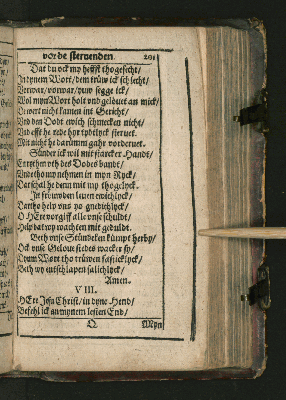 vor de steruenden. 201
Dat du ock my heffst thogesecht/
In dynem Wort/ dem trüw ick schlecht/
Vorwar/ vorwar/ yuw segge ick/
Wol myn Wort holt vnd gelöuet an mick/
De wert nicht kamen int Gericht/
Vnd den Dodt ewich schmecken nicht/
Vnd efft he rede hyr tydtlyck steruet.
Mit nicht he darümm gahr vorderuet.
Sünder ick wil mit starcker Handt/
En rethen vth des Dodes bandt/
Vnde tho my nehmen in myn Ryck/
Dar schal he denn mit my thogelyck.
In frouwden leuen ewichlyck/
Dartho help vns yo gnedichlyck/
O HEre vorgiff alle vnse schuldt/
Help dat wy wachten mit geduldt.
Beth vnse Stündeken kümpt herby/
Ock vnse Geloue stedes wacker sy/
Dynm Wort tho trüwen fastichlyck/
Beth wy entschlapen salichlyck/
Amen.
VIII.
HEre Jesu Christ/ in dyne Hend/
Befehl ick an mynem lesten End/
Myn